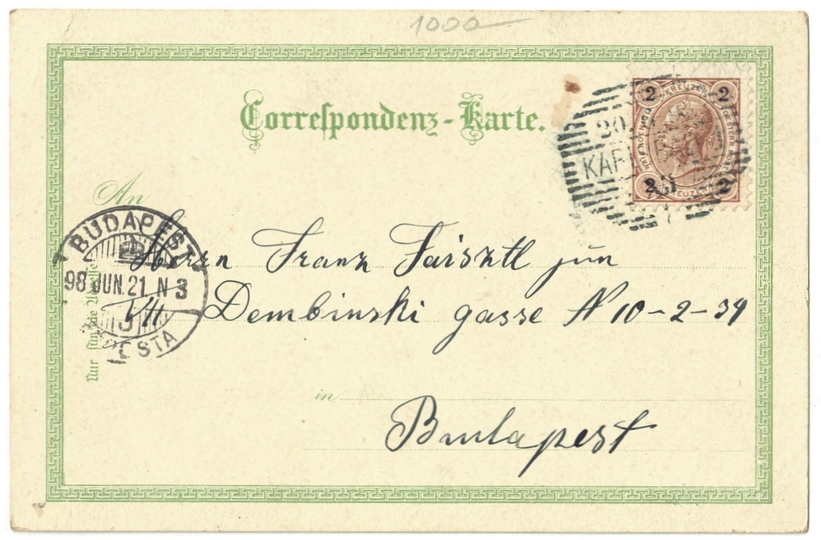 1000
Correspondenz-Karte.
2 2
KREUZER
2 2
20
KAR
An
BUDAPEST
98 JUN. 21 N 3
PESTA
Nur für die Adresse
Herrn Franz Faisztl jun
VII Dembinski gasse N 10-2-39
in
Budapest